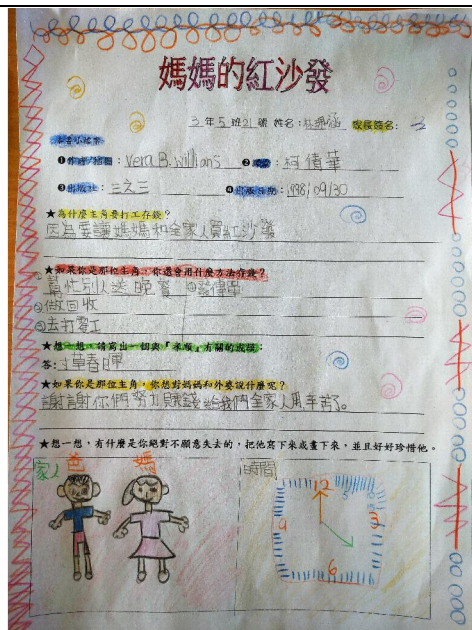 媽媽的紅沙發
3年5班21號 姓名：林 家長簽名：
本書小檔案
❶作者/繪圖：Vera B. Willians ❷：柯倩華
❸出版社：三之三 ❹出版日期：1998/09/30
★為什麼主角要打工存錢？
因為要讓媽媽和全家人買紅沙發
★如果你是那位主角，你還會用什麼方法存錢？
①幫忙別人送晚餐 ④發傳單
②做回收
③去打零工
★想一想，請寫出一個與「來暖」有關的成語：
答：春日
★如果你是那位主角，你想對媽媽和外婆說什麼呢？
謝謝你們努力賺錢給我們全家人用辛苦了。
★想一想，有什麼是你絕對不願意失去的，把他寫下來或畫下來，並且好好珍惜他。
家人 爸 媽 時間
12
5
3
9
6